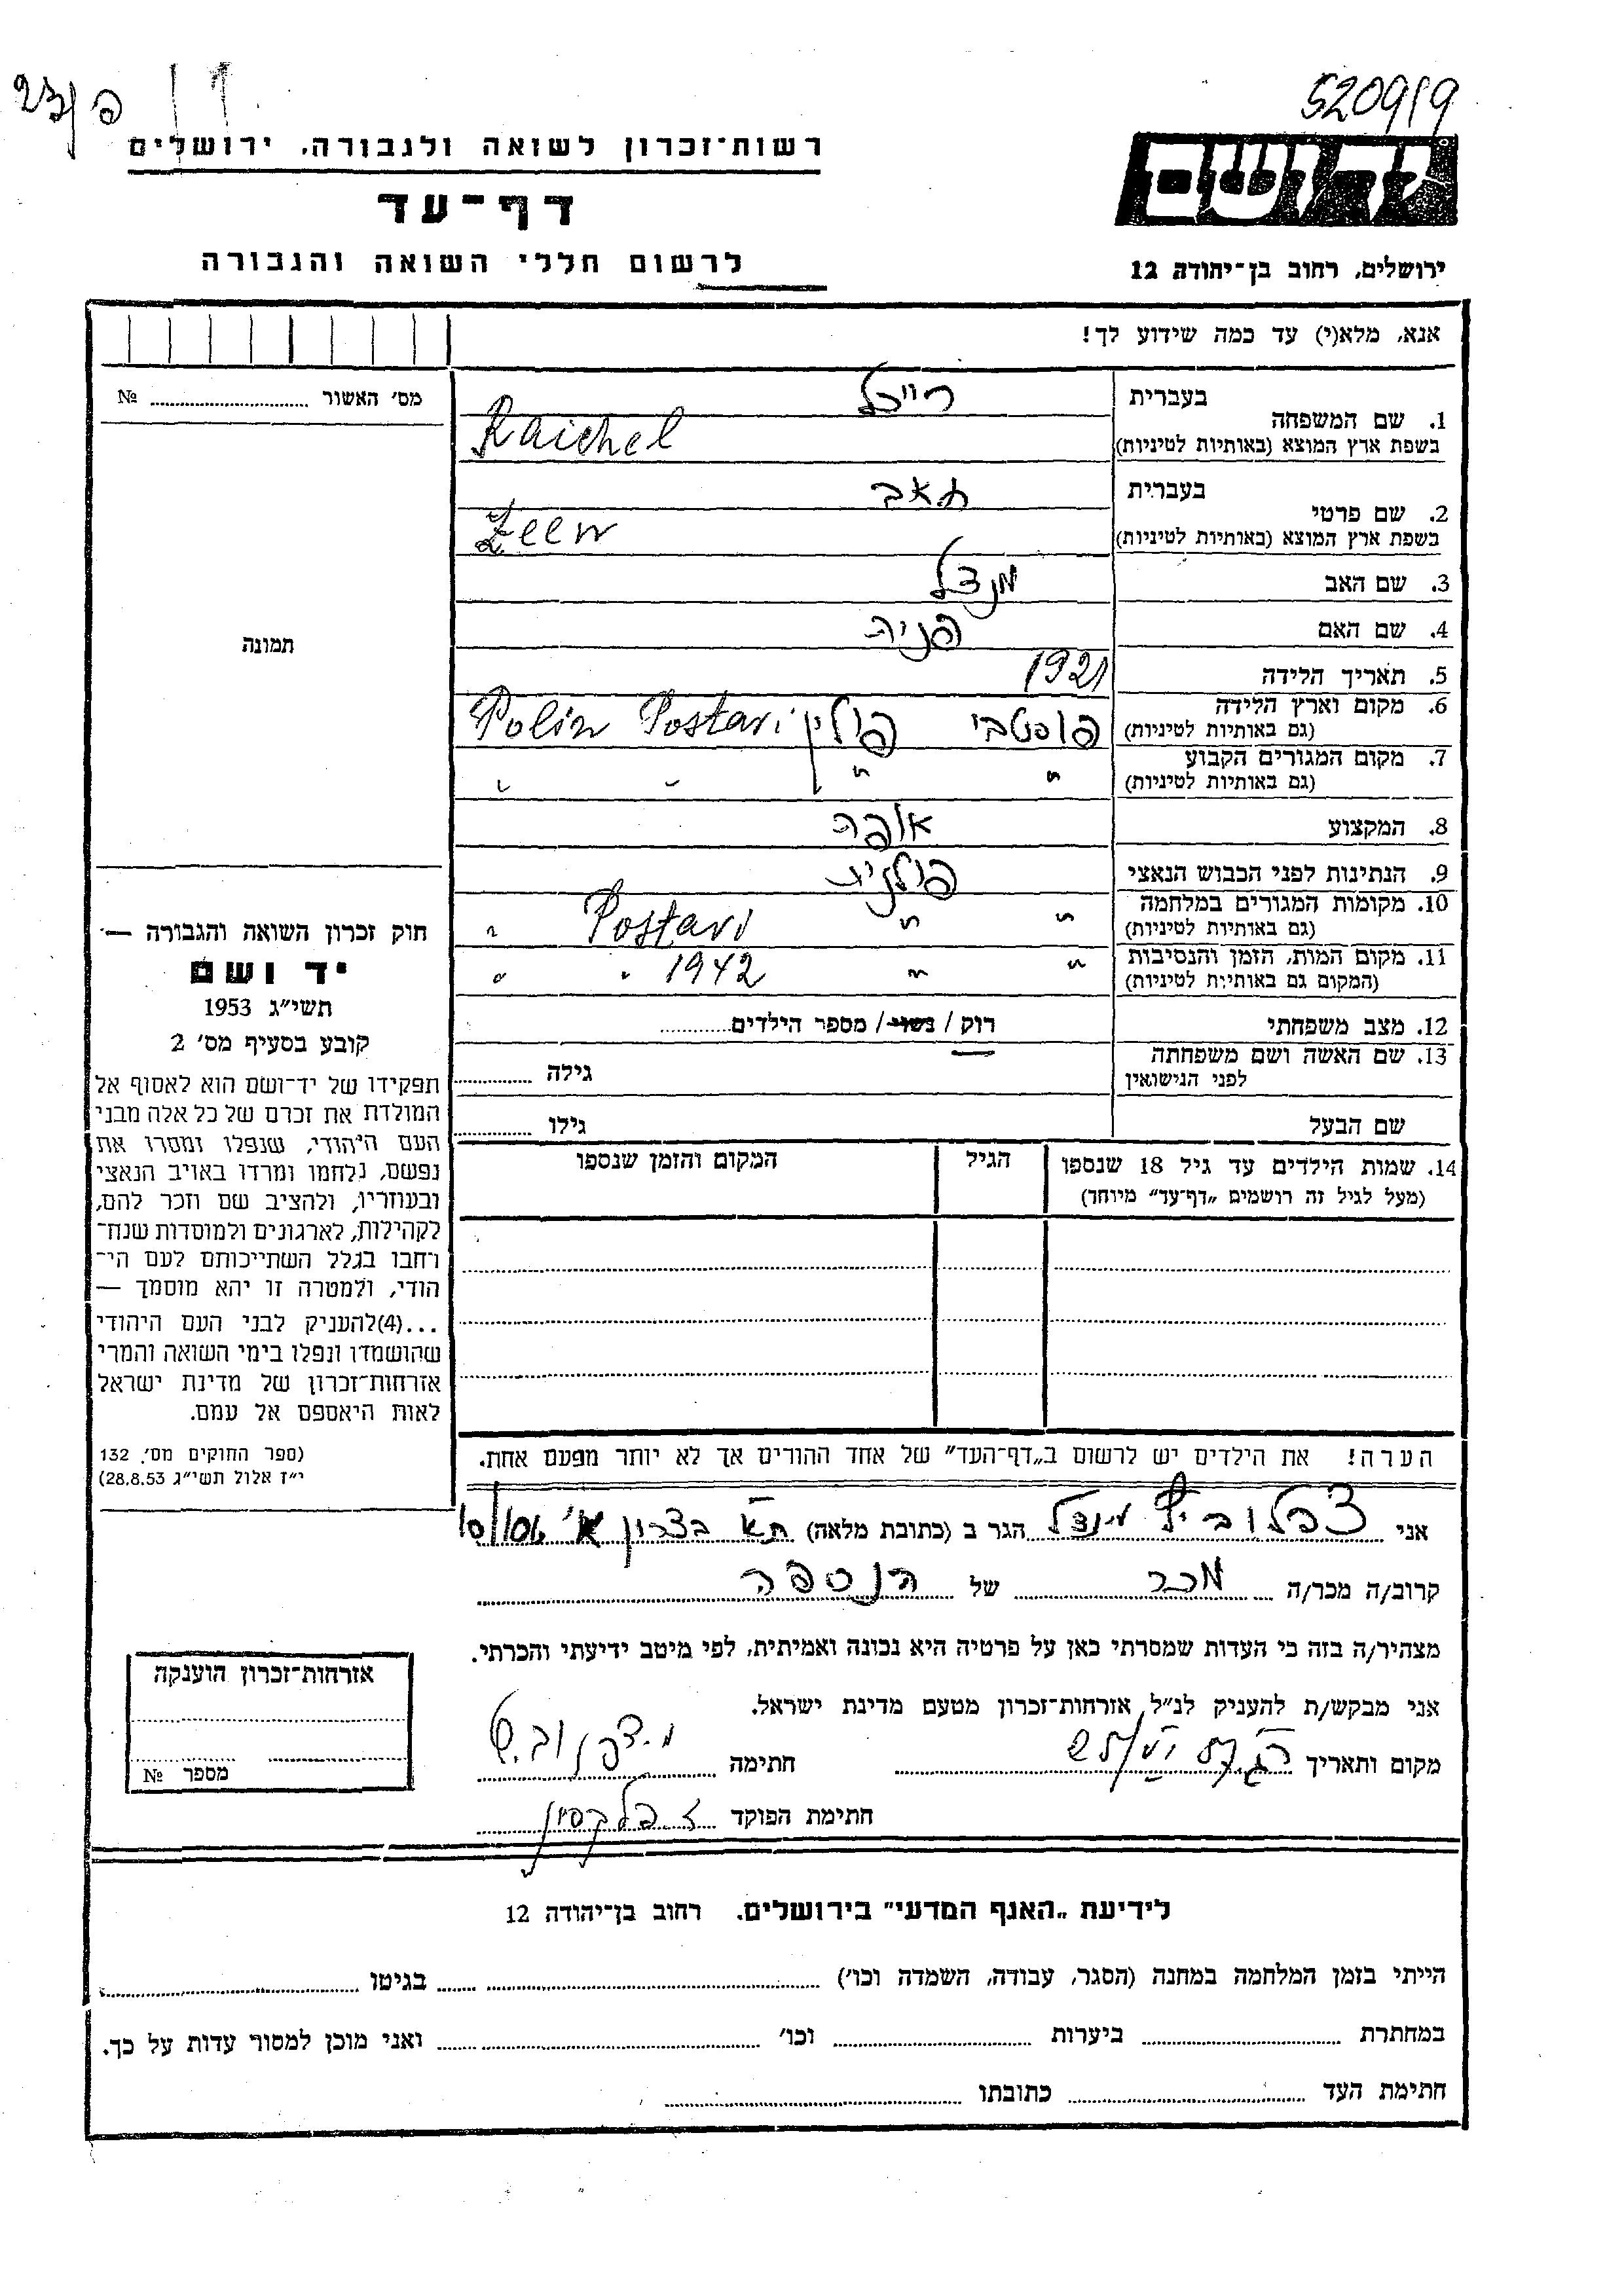 5209/9
רשות־זכרון לשואה ולגבורה, ירושלים
דף־עד
לרשום חללי השואה והגבורה
ירושלים, רחוב בן־יהודה 12
אנא, מלא(י) עד כמה שידוע לך!
מס׳ האשור № 
1. שם המשפחה
בעברית רייכל
בשפת ארץ המוצא (באותיות לטיניות) Raichel
2. שם פרטי
בעברית זאב
בשפת ארץ המוצא (באותיות לטיניות) Zeew
3. שם האב מנדל
4. שם האם פניה
5. תאריך הלידה 1921
6. מקום וארץ הלידה פוסטבי פולין Postavi Polin
(גם באותיות לטיניות)
7. מקום המגורים הקבוע " " " "
(גם באותיות לטיניות)
8. המקצוע אופה
9. הנתינות לפני הכבוש הנאצי פולנית
10. מקומות המגורים במלחמה " " Postavi "
(גם באותיות לטיניות)
11. מקום המות, הזמן והנסיבות " " 1942 " "
(המקום גם באותיות לטיניות)
12. מצב משפחתי רוק / נשוי / מספר הילדים
13. שם האשה ושם משפחתה
לפני הנישואין
גילה
שם הבעל
גילו
14. שמות הילדים עד גיל 18 שנספו
(מעל לגיל זה רושמים „דף־עד” מיוחד)
הגיל
המקום והזמן שנספו
תמונה
חוק זכרון השואה והגבורה —
יד ושם
תשי״ג 1953
קובע בסעיף מס׳ 2
תפקידו של יד־ושם הוא לאסוף אל
המולדת את זכרם של כל אלה מבני
העם היהודי, שנפלו ומסרו את
נפשם, נלחמו ומרדו באויב הנאצי
ובעוזריו, ולהציב שם וזכר להם,
לקהילות, לארגונים ולמוסדות שנח־
רחבו בגלל השתייכותם לעם הי־
הודי, ולמטרה זו יהא מוסמך —
...(4)להעניק לבני העם היהודי
שהושמדו ונפלו בימי השואה והמרי
אזרחות־זכרון של מדינת ישראל
לאות היאספם אל עמם.
(ספר החוקים מס׳ 132
י״ז אלול תשי״ג 28.8.53)
הערה! את הילדים יש לרשום ב„דף־העד” של אחד ההורים אך לא יותר מפעם אחת.
אני מנדל הגר ב (כתובת מלאה) ת״א בצרון
קרוב/ה מכר/ה מכר של הנספה
מצהיר/ה בזה כי העדות שמסרתי כאן על פרטיה היא נכונה ואמיתית, לפי מיטב ידיעתי והכרתי.
אני מבקש/ת להעניק לנ״ל אזרחות־זכרון מטעם מדינת ישראל.
מקום ותאריך
חתימה
חתימת הפוקד
אזרחות־זכרון הוענקה
מספר №
לידיעת „האנף המדעי” בירושלים. רחוב בן־יהודה 12
הייתי בזמן המלחמה במחנה (הסגר, עבודה, השמדה וכו׳) בגיטו
במחתרת ביערות וכו׳ ואני מוכן למסור עדות על כך.
חתימת העד כתובתו